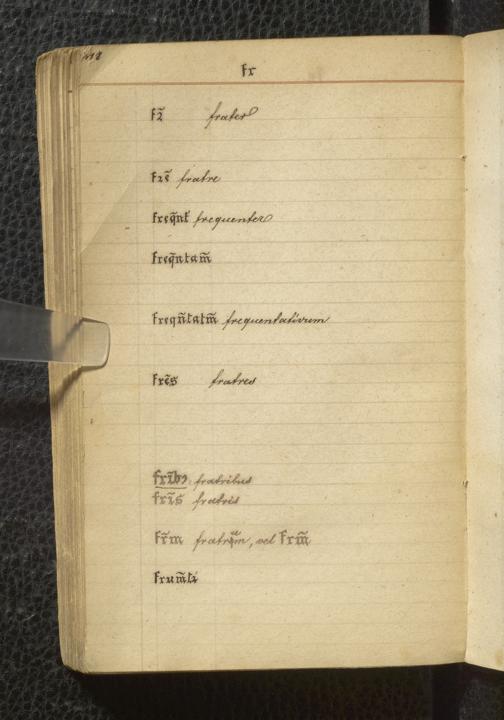 fr
fr̄ frater
frē fratre
freq̄nt̄ frequenter
freq̄ntam̄
freqn̄tatm̄ frequentativum
frēs fratres
frībꝫ fratribus
frīs fratris
fr̄m fratrum, vel frm̄
frum̄ti